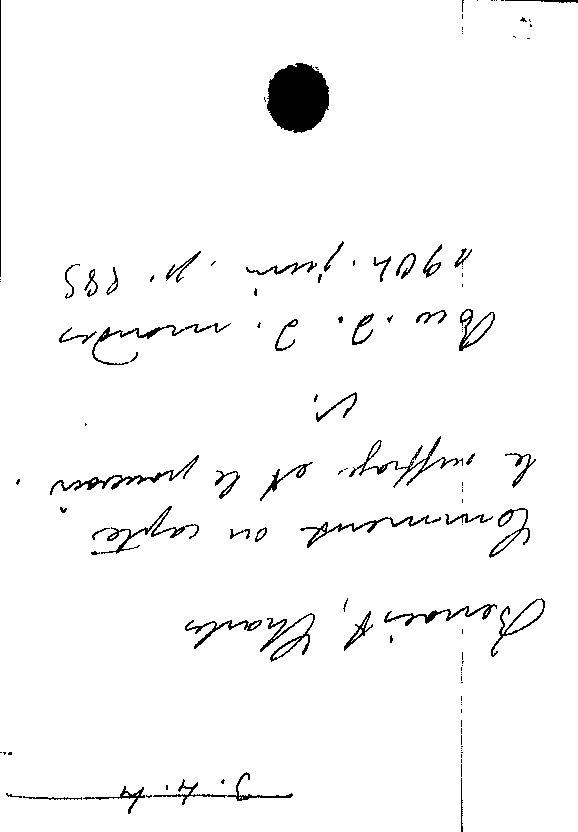 Benoist, Charles
Comment on capte
le suffrage et le pouvoir.
v.
Rev. d. d. mondes
1904. juin. p. 885